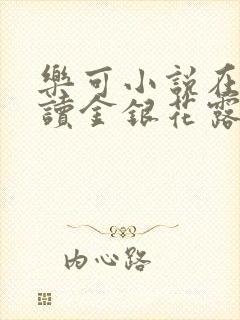 樂可小說在
讀金銀花露
内心路